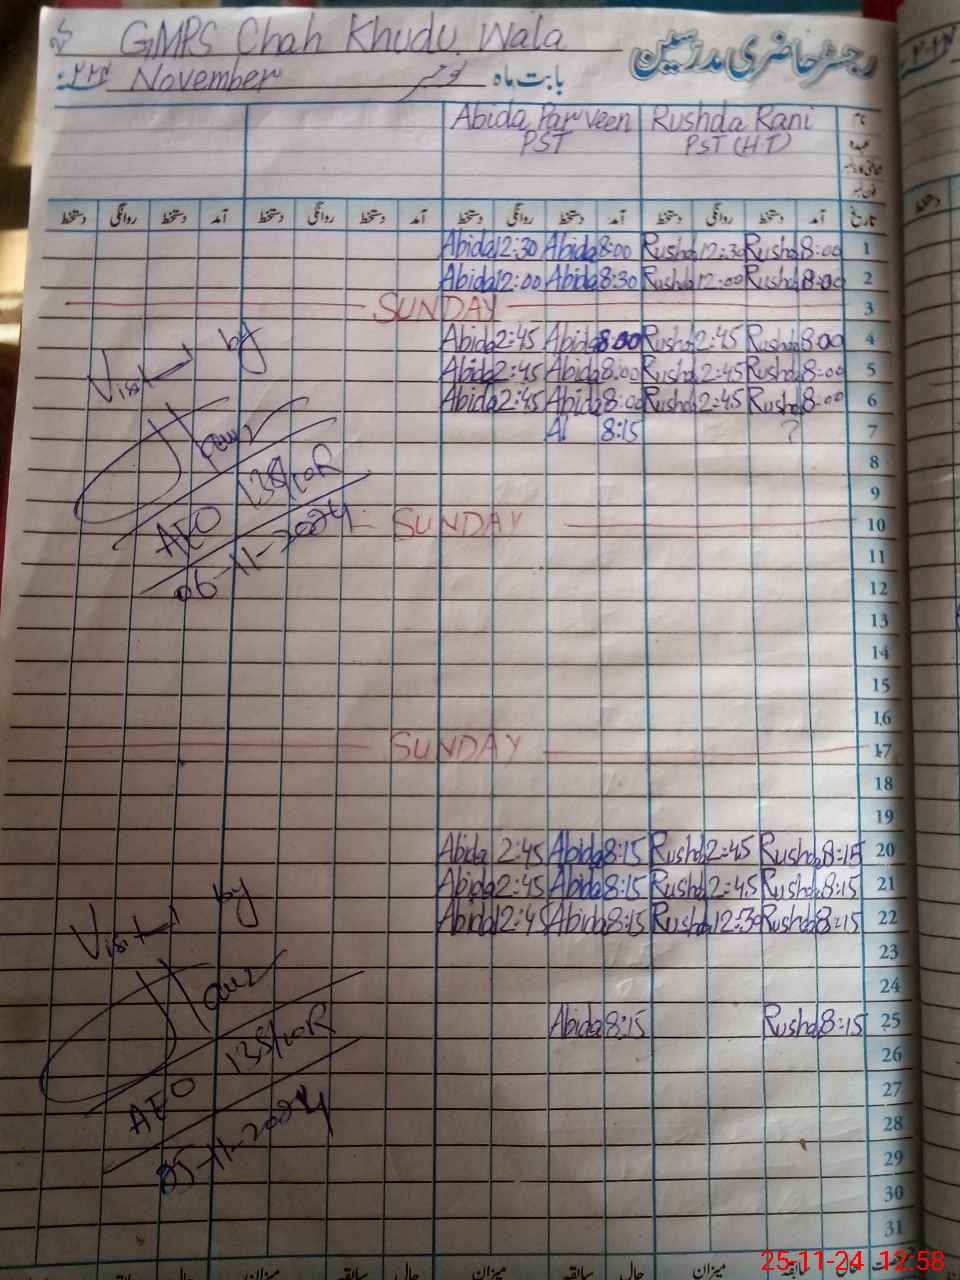 GMPS Chah Khudu Wala
رجسٹر حاضری مدرسین
بابت ماہ نومبر November
Abida Parveen Rushda Rani نام
PST PST (H.T) عہدہ
دستخط روانگی دستخط آمد دستخط روانگی دستخط آمد دستخط روانگی دستخط آمد دستخط روانگی دستخط آمد تاریخ
Abida 12:30 Abida 8:00 Rushda 12:30 Rushda 8:00 1
Abida 12:00 Abida 8:30 Rushda 12:00 Rushda 8:00 2
SUNDAY 3
Abida 2:45 Abida 8:00 Rushda 2:45 Rushda 8:00 4
Abida 2:45 Abida 8:00 Rushda 2:45 Rushda 8:00 5
Abida 2:45 Abida 8:00 Rushda 2:45 Rushda 8:00 6
8:15 ? 7
8
9
SUNDAY 10
11
12
13
14
15
16
SUNDAY 17
18
19
Abida 2:45 Abida 8:15 Rushda 2:45 Rushda 8:15 20
Abida 2:45 Abida 8:15 Rushda 2:45 Rushda 8:15 21
Abida 12:45 Abida 8:15 Rushda 12:30 Rushda 8:15 22
23
24
Abida 8:15 Rushda 8:15 25
26
27
28
29
30
31
Visited by
AEO 138/10R
06-11-2024
Visited by
AEO 138/10R
25-11-2024
میزان سابقہ حال میزان سابقہ حال میزان سابقہ
25-11-24 12:58